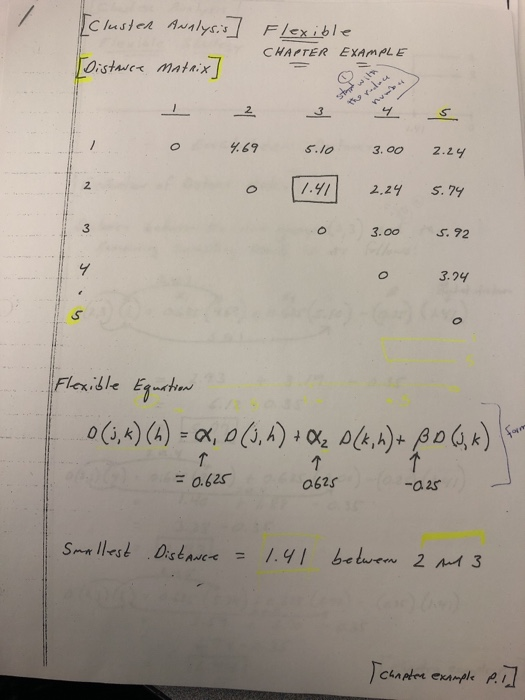 [Cluster Analysis] Flexible
CHAPTER EXAMPLE
[Distance Matrix]
① start with
the
number
1 2 3 4 5
1 0 4.69 5.10 3.00 2.24
2 0 1.41 2.24 5.74
3 0 3.00 5.92
4 0 3.74
5 0
Flexible Equation
D(j,k)(h) = α₁ D(j,h) + α₂ D(k,h) + β D(j,k)
↑ ↑ ↑
= 0.625 0.625 -0.25
Smallest Distance = 1.41 between 2 and 3
[Chapter example P.1]